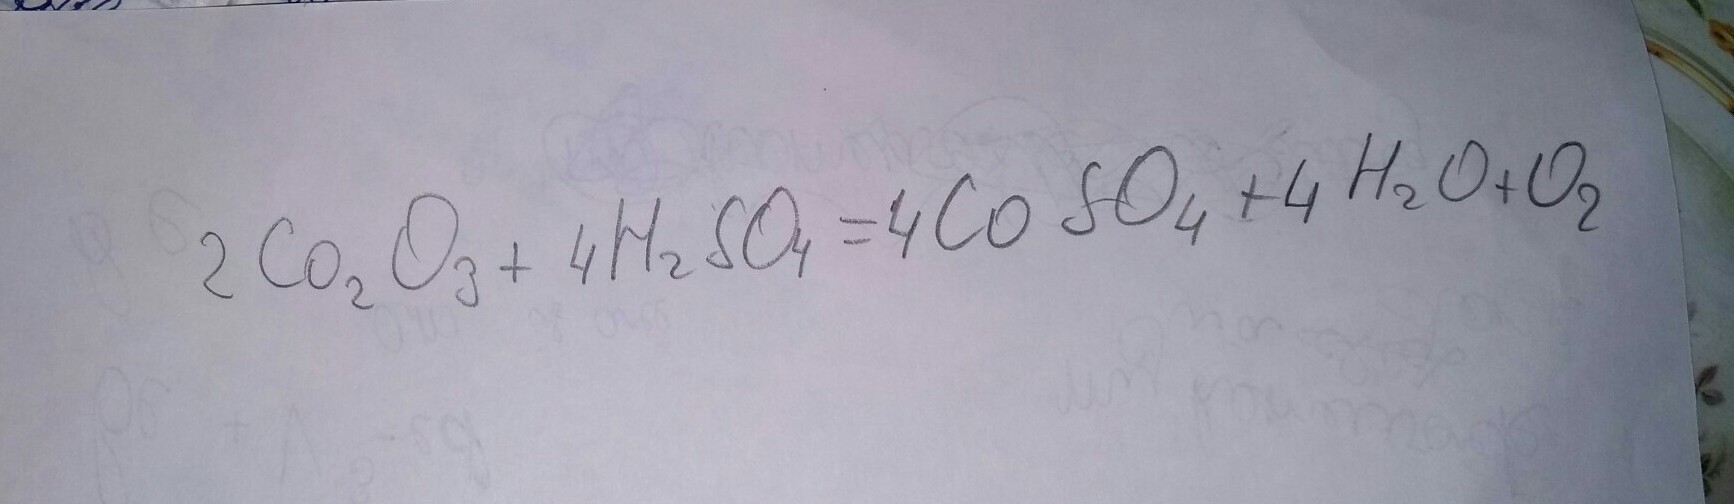 2Co₂O₃ + 4H₂SO₄ = 4CoSO₄ + 4H₂O + O₂